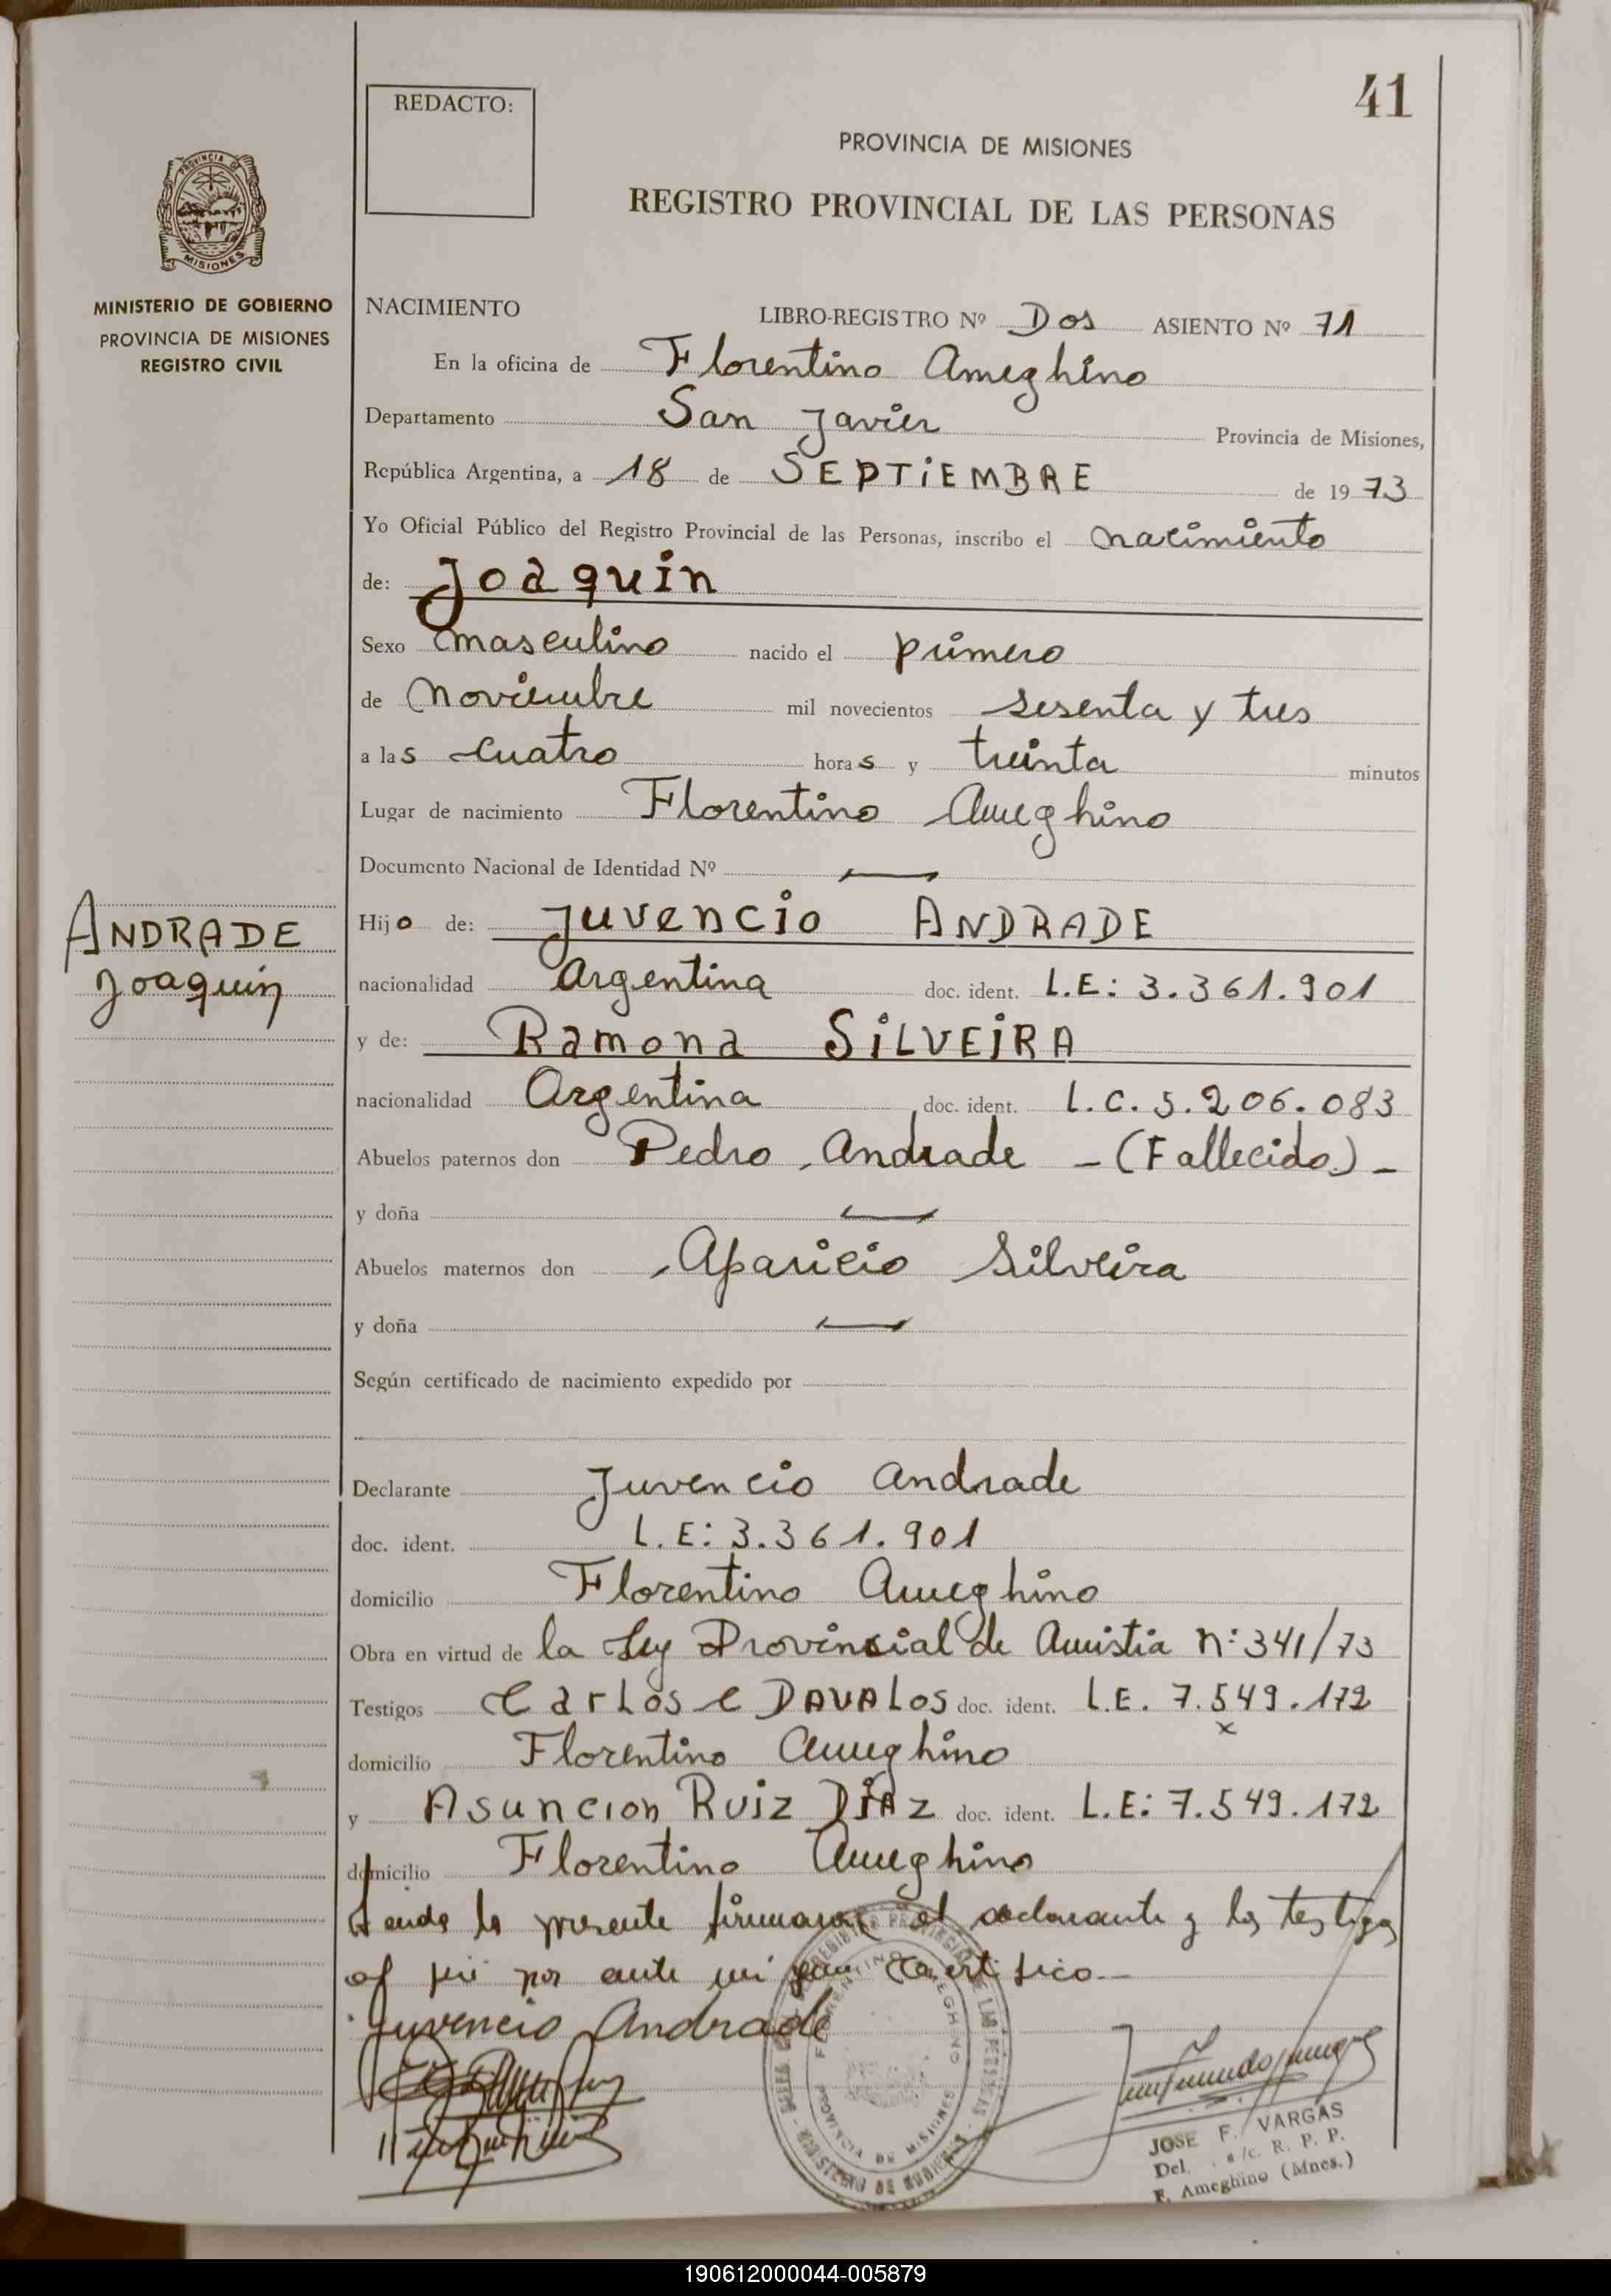 41
REDACTO:
PROVINCIA DE MISIONES
REGISTRO PROVINCIAL DE LAS PERSONAS
PROVINCIA DE
MISIONES
MINISTERIO DE GOBIERNO
PROVINCIA DE MISIONES
REGISTRO CIVIL
NACIMIENTO LIBRO-REGISTRO Nº Dos ASIENTO Nº 71
En la oficina de Florentino Ameghino
Departamento San Javier Provincia de Misiones,
República Argentina, a 18 de SEPTiEMBRE de 1973
Yo Oficial Público del Registro Provincial de las Personas, inscribo el nacimiento
de: Joaquin
Sexo masculino nacido el primero
de Noviembre mil novecientos sesenta y tres
a las cuatro horas y treinta minutos
Lugar de nacimiento Florentino Ameghino
Documento Nacional de Identidad Nº —
ANDRADE
Joaquin
Hijo de: Juvencio ANDRADE
nacionalidad Argentina doc. ident. L.E: 3.361.901
y de: Ramona SiLVEiRA
nacionalidad Argentina doc. ident. L.C. 5.206.083
Abuelos paternos don Pedro Andrade - (Fallecido) -
y doña —
Abuelos maternos don Aparicio Silveira
y doña —
Según certificado de nacimiento expedido por
Declarante Juvencio Andrade
doc. ident. L.E: 3.361.901
domicilio Florentino Ameghino
Obra en virtud de la Ley Provincial de Amistia N: 341/73
Testigos Carlos e DAVALOS doc. ident. L.E. 7.549.172
x
domicilio Florentino Ameghino
y Asuncion Ruiz DiAz doc. ident. L.E: 7.549.172
domicilio Florentino Ameghino
la presente firmaran el declarante y los testigos
por ante mi que certifico.-
Juvencio Andrade
FLORENTINO AMEGHINO
PROVINCIA DE MISIONES
JOSE F. VARGAS
Del. a/c. R. P. P.
F. Ameghino (Mnes.)
190612000044-005879